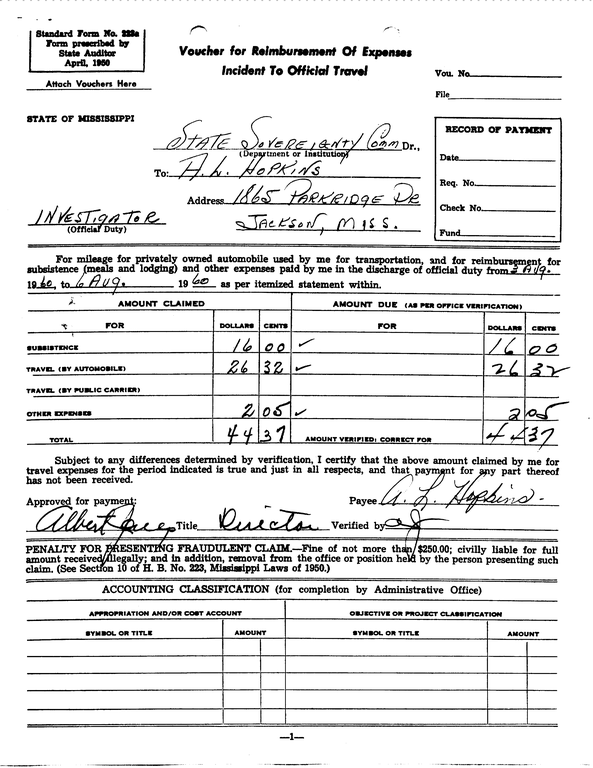 Standard Form No. 223a
Form prescribed by
State Auditor
April, 1950
Attach Vouchers Here
Voucher for Reimbursement Of Expenses
Incident To Official Travel
Vou. No.
File
STATE OF MISSISSIPPI
STATE SOVEREIGNTY COMM Dr.,
(Department or Institution)
To: A. L. HOPKINS
Address 1865 PARKRIDGE DR
JACKSON, MISS.
INVESTIGATOR
(Official Duty)
RECORD OF PAYMENT
Date
Req. No.
Check No.
Fund
For mileage for privately owned automobile used by me for transportation, and for reimbursement for
subsistence (meals and lodging) and other expenses paid by me in the discharge of official duty from 3 Aug.
1960, to 6 Aug. 1960 as per itemized statement within.
AMOUNT CLAIMED AMOUNT DUE (AS PER OFFICE VERIFICATION)
FOR DOLLARS CENTS FOR DOLLARS CENTS
SUBSISTENCE 16 00 ✓ 16 00
TRAVEL (BY AUTOMOBILE) 26 32 ✓ 26 32
TRAVEL (BY PUBLIC CARRIER)
OTHER EXPENSES 2 05 ✓ 2 05
TOTAL 44 37 AMOUNT VERIFIED: CORRECT FOR 44 37
Subject to any differences determined by verification, I certify that the above amount claimed by me for
travel expenses for the period indicated is true and just in all respects, and that payment for any part thereof
has not been received.
Approved for payment: Payee A. L. Hopkins
Albert Title Director Verified by
PENALTY FOR PRESENTING FRAUDULENT CLAIM.—Fine of not more than $250.00; civilly liable for full
amount received illegally; and in addition, removal from the office or position held by the person presenting such
claim. (See Section 10 of H. B. No. 223, Mississippi Laws of 1950.)
ACCOUNTING CLASSIFICATION (for completion by Administrative Office)
APPROPRIATION AND/OR COST ACCOUNT OBJECTIVE OR PROJECT CLASSIFICATION
SYMBOL OR TITLE AMOUNT SYMBOL OR TITLE AMOUNT
—1—